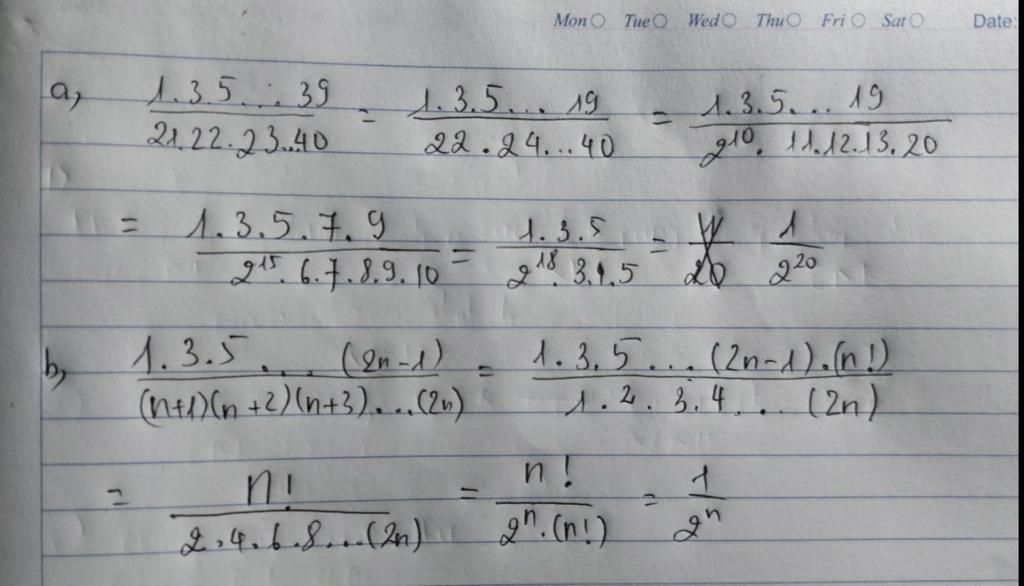 Mon Tue Wed Thu Fri Sat Date:
a, 1.3.5...39 / 21.22.23..40 = 1.3.5...19 / 22.24...40 = 1.3.5...19 / 2^10. 11.12.13.20
= 1.3.5.7.9 / 2^15.6.7.8.9.10 = 1.3.5 / 2^18.3.1.5 = 1 / 2^20
b, 1.3.5....(2n-1) / (n+1)(n+2)(n+3)...(2n) = 1.3.5...(2n-1).(n!) / 1.2.3.4...(2n)
= n! / 2.4.6.8...(2n) = n! / 2^n.(n!) = 1 / 2^n